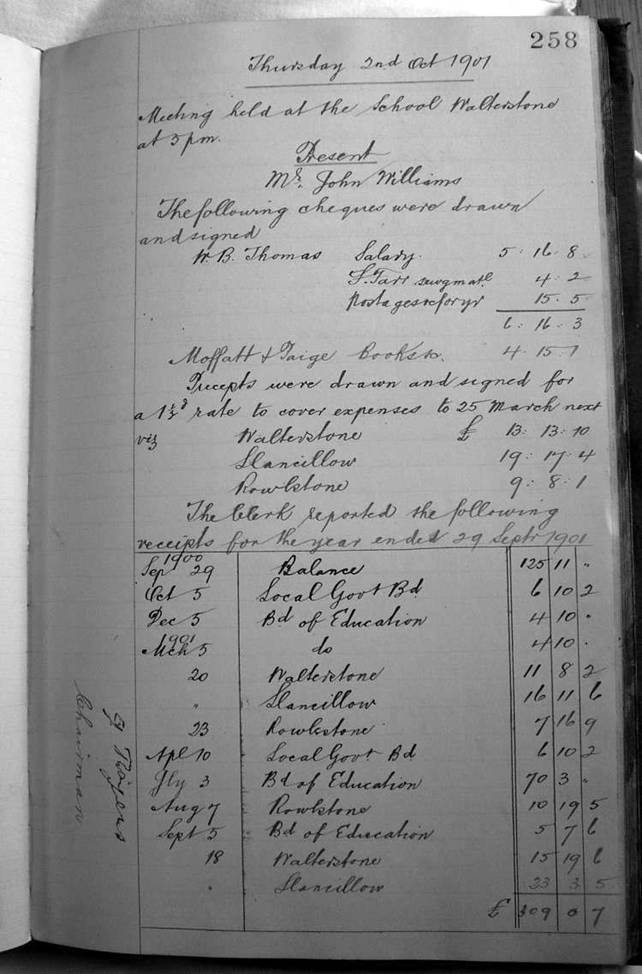 258
Thursday 2nd Oct 1901
Meeting held at the School Walterstone
at 3 pm.
Present
Mr. John Williams
The following cheques were drawn
and signed
W. B. Thomas Salary. 5 . 16 . 8
S. Tarr sewg matl 4 . 2
Postages &c for yr 15 . 5
6 : 16 : 3
Moffatt & Paige Books &c. 4 . 15 . 7
Precepts were drawn and signed for
a 1½d rate to cover expenses to 25 March next
viz Walterstone £ 13 : 13 : 10
Llancillow 19 : 17 : 4
Rowlstone 9 : 8 : 1
The Clerk reported the following
receipts for the year ended 29 Septr 1901
1900
Sep 29 Balance 125 11 "
Oct 5 Local Govt Bd 6 10 2
Dec 5 Bd of Education 4 10 "
1901
Mch 5 do 4 10 "
20 Walterstone 11 8 2
" Llancillow 16 11 6
23 Rowlstone 7 16 9
Apl 10 Local Govt Bd 6 10 2
Jly 3 Bd of Education 70 3 "
Aug 7 Rowlstone 10 19 5
Sept 5 Bd of Education 5 7 6
18 Walterstone 15 19 6
" Llancillow 23 3 5
£ 309 0 7
Chairman